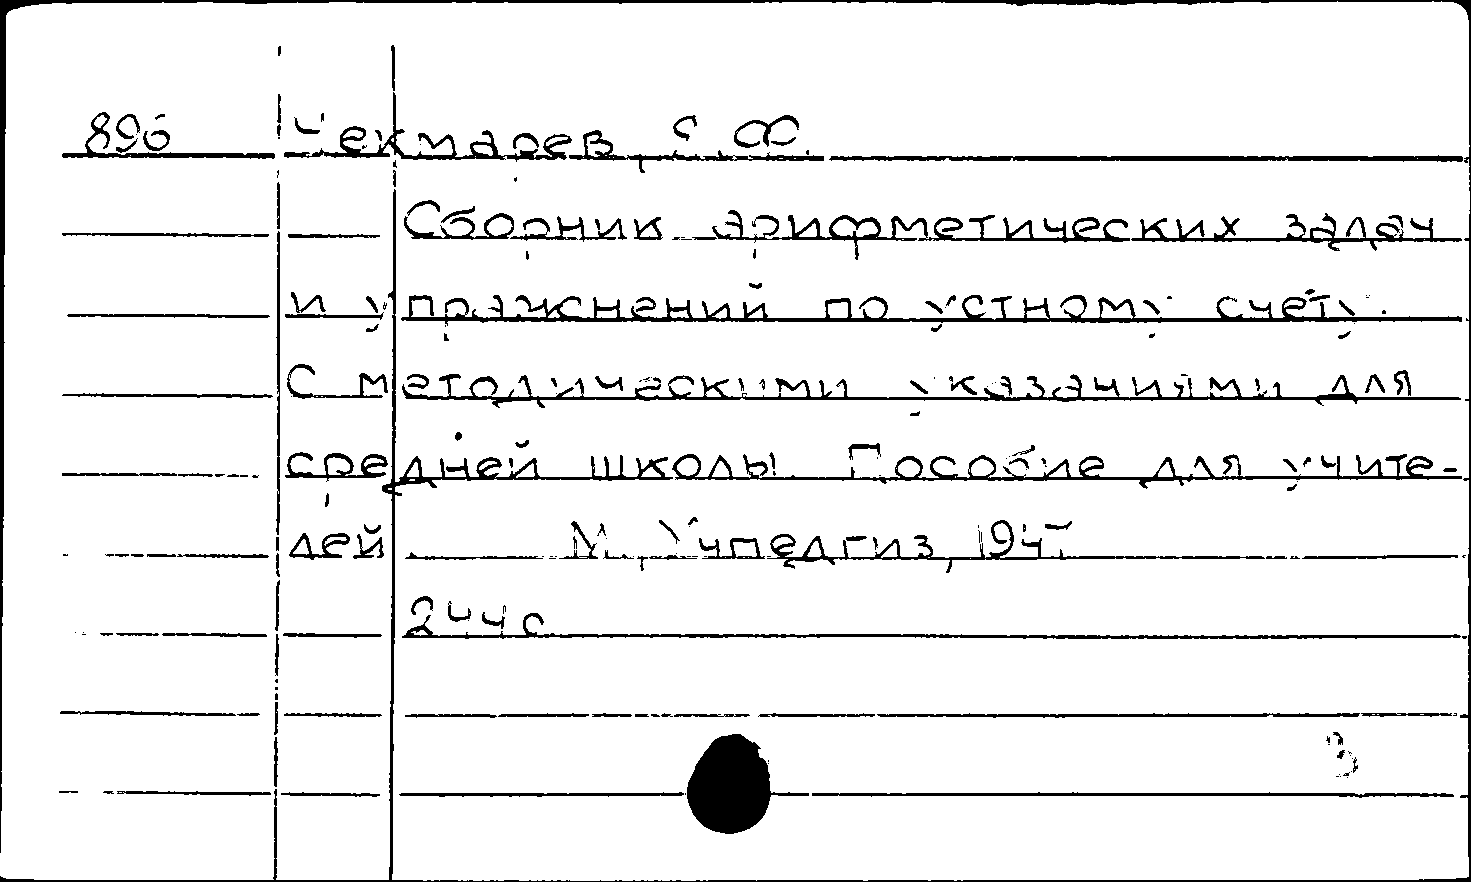 896 Чекмарев, Я.Ф.
Сборник арифметических задач
и упражнений по устному счету.
С методическими указаниями для
средней школы. Пособие для учите-
лей. М., Учпедгиз, 1947
244 с
3